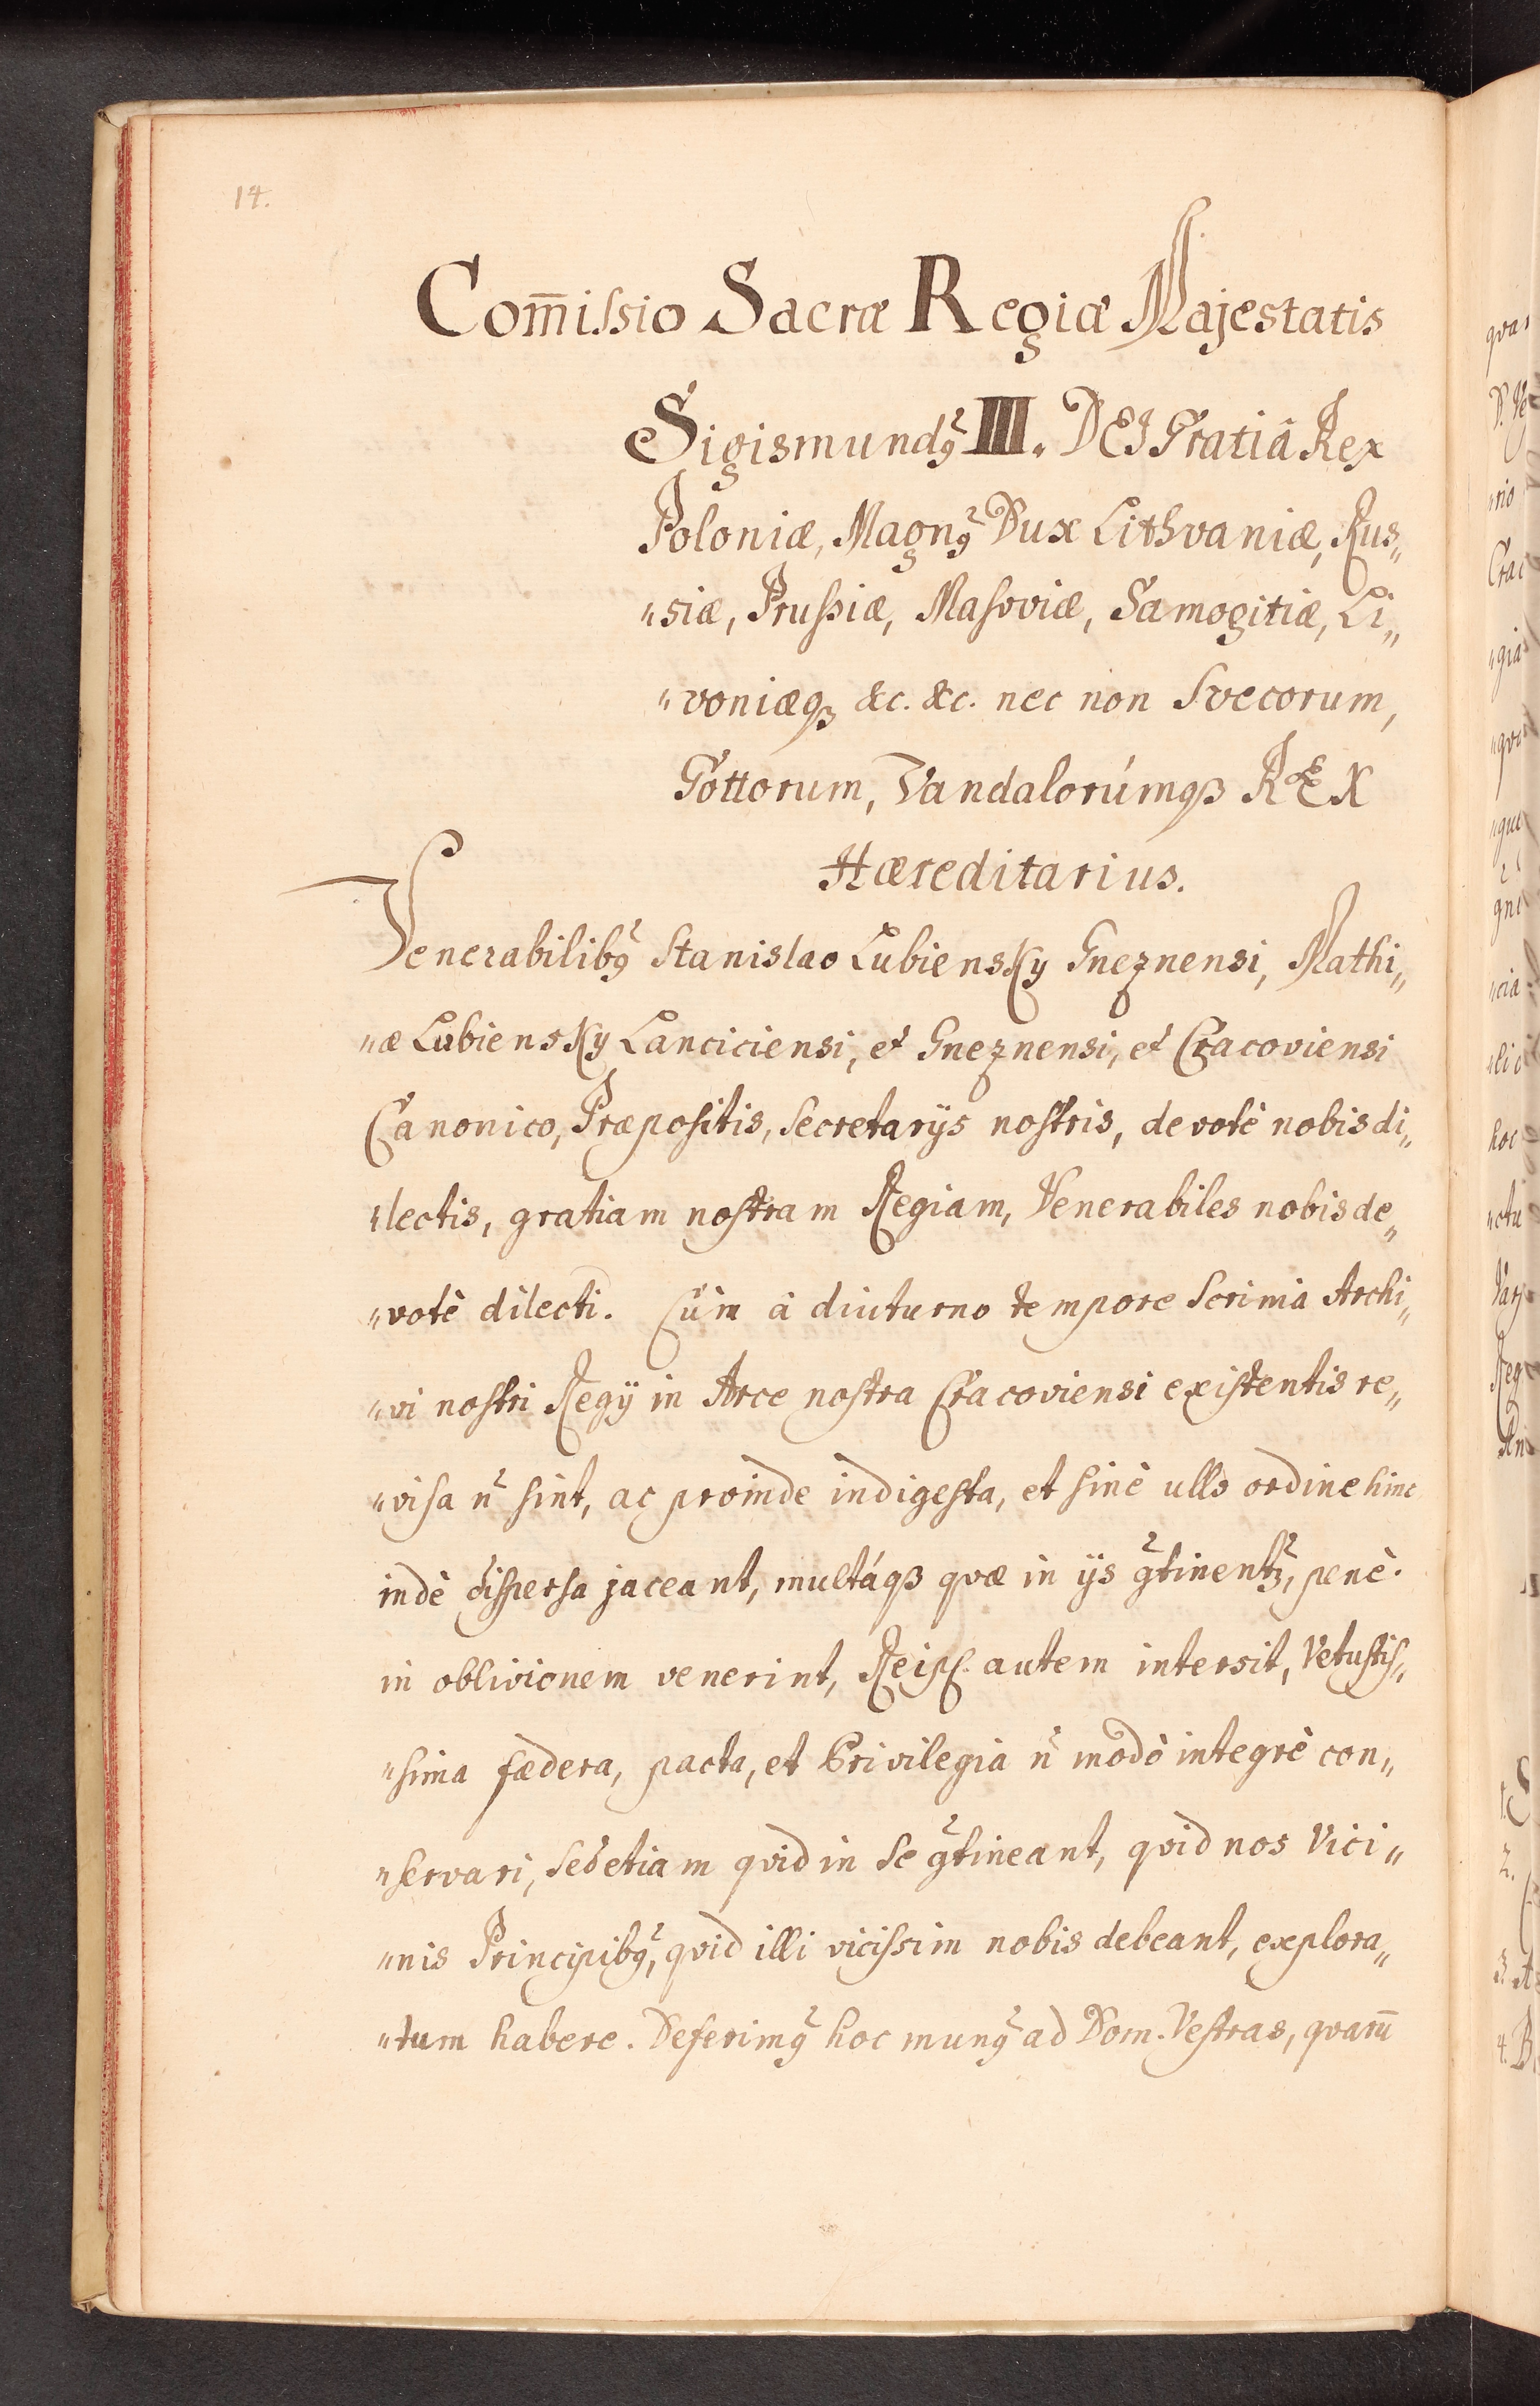 14.
Com̄issio Sacræ Regiæ Majestatis
Sigismundꝯ III. DEI Gratiâ Rex
Poloniæ, Magnꝯ Dux Lithvaniæ, Rus„
„siæ, Prussiæ, Masoviæ, Samogitiæ, Li„
„voniæqꝫ &c. &c. nec non Svecorum,
Gottorum, Vandalorúmqꝫ REX
Hæreditarius.
Venerabilibꝯ Stanislao Lubiensky Gneznensi, Mathi„
„æ Lubiensky Lanciciensi, et Gneznensi, et Cracoviensi
Canonico, Præpositis, Secretarijs nostris, devotè nobis di„
„lectis, gratiam nostram Regiam, Venerabiles nobis de„
„votè dilecti. Cùm à diuturno tempore Scrinia Archi„
„vi nostri Regij in Arce nostra Cracoviensi existentis re„
„visa n̄ sint, ac proinde indigesta, et sinè ullo ordine hinc
indè dispersa jaceant, multáqꝫ qvæ in ijs ꝯtinentꝫ, penè
in oblivionem venerint, Reipꝭ. autem intersit, Vetustis„
„sima fædera, pacta, et Privilegia n̄ modò integrè con„
„servari, sed etiam qvid in se ꝯtineant, qvid nos Vici„
„nis Principibꝯ, qvid illi vicissim nobis debeant, explora„
„tum habere. Deferimꝯ hoc munꝯ ad Dom. Vestras, qvarū